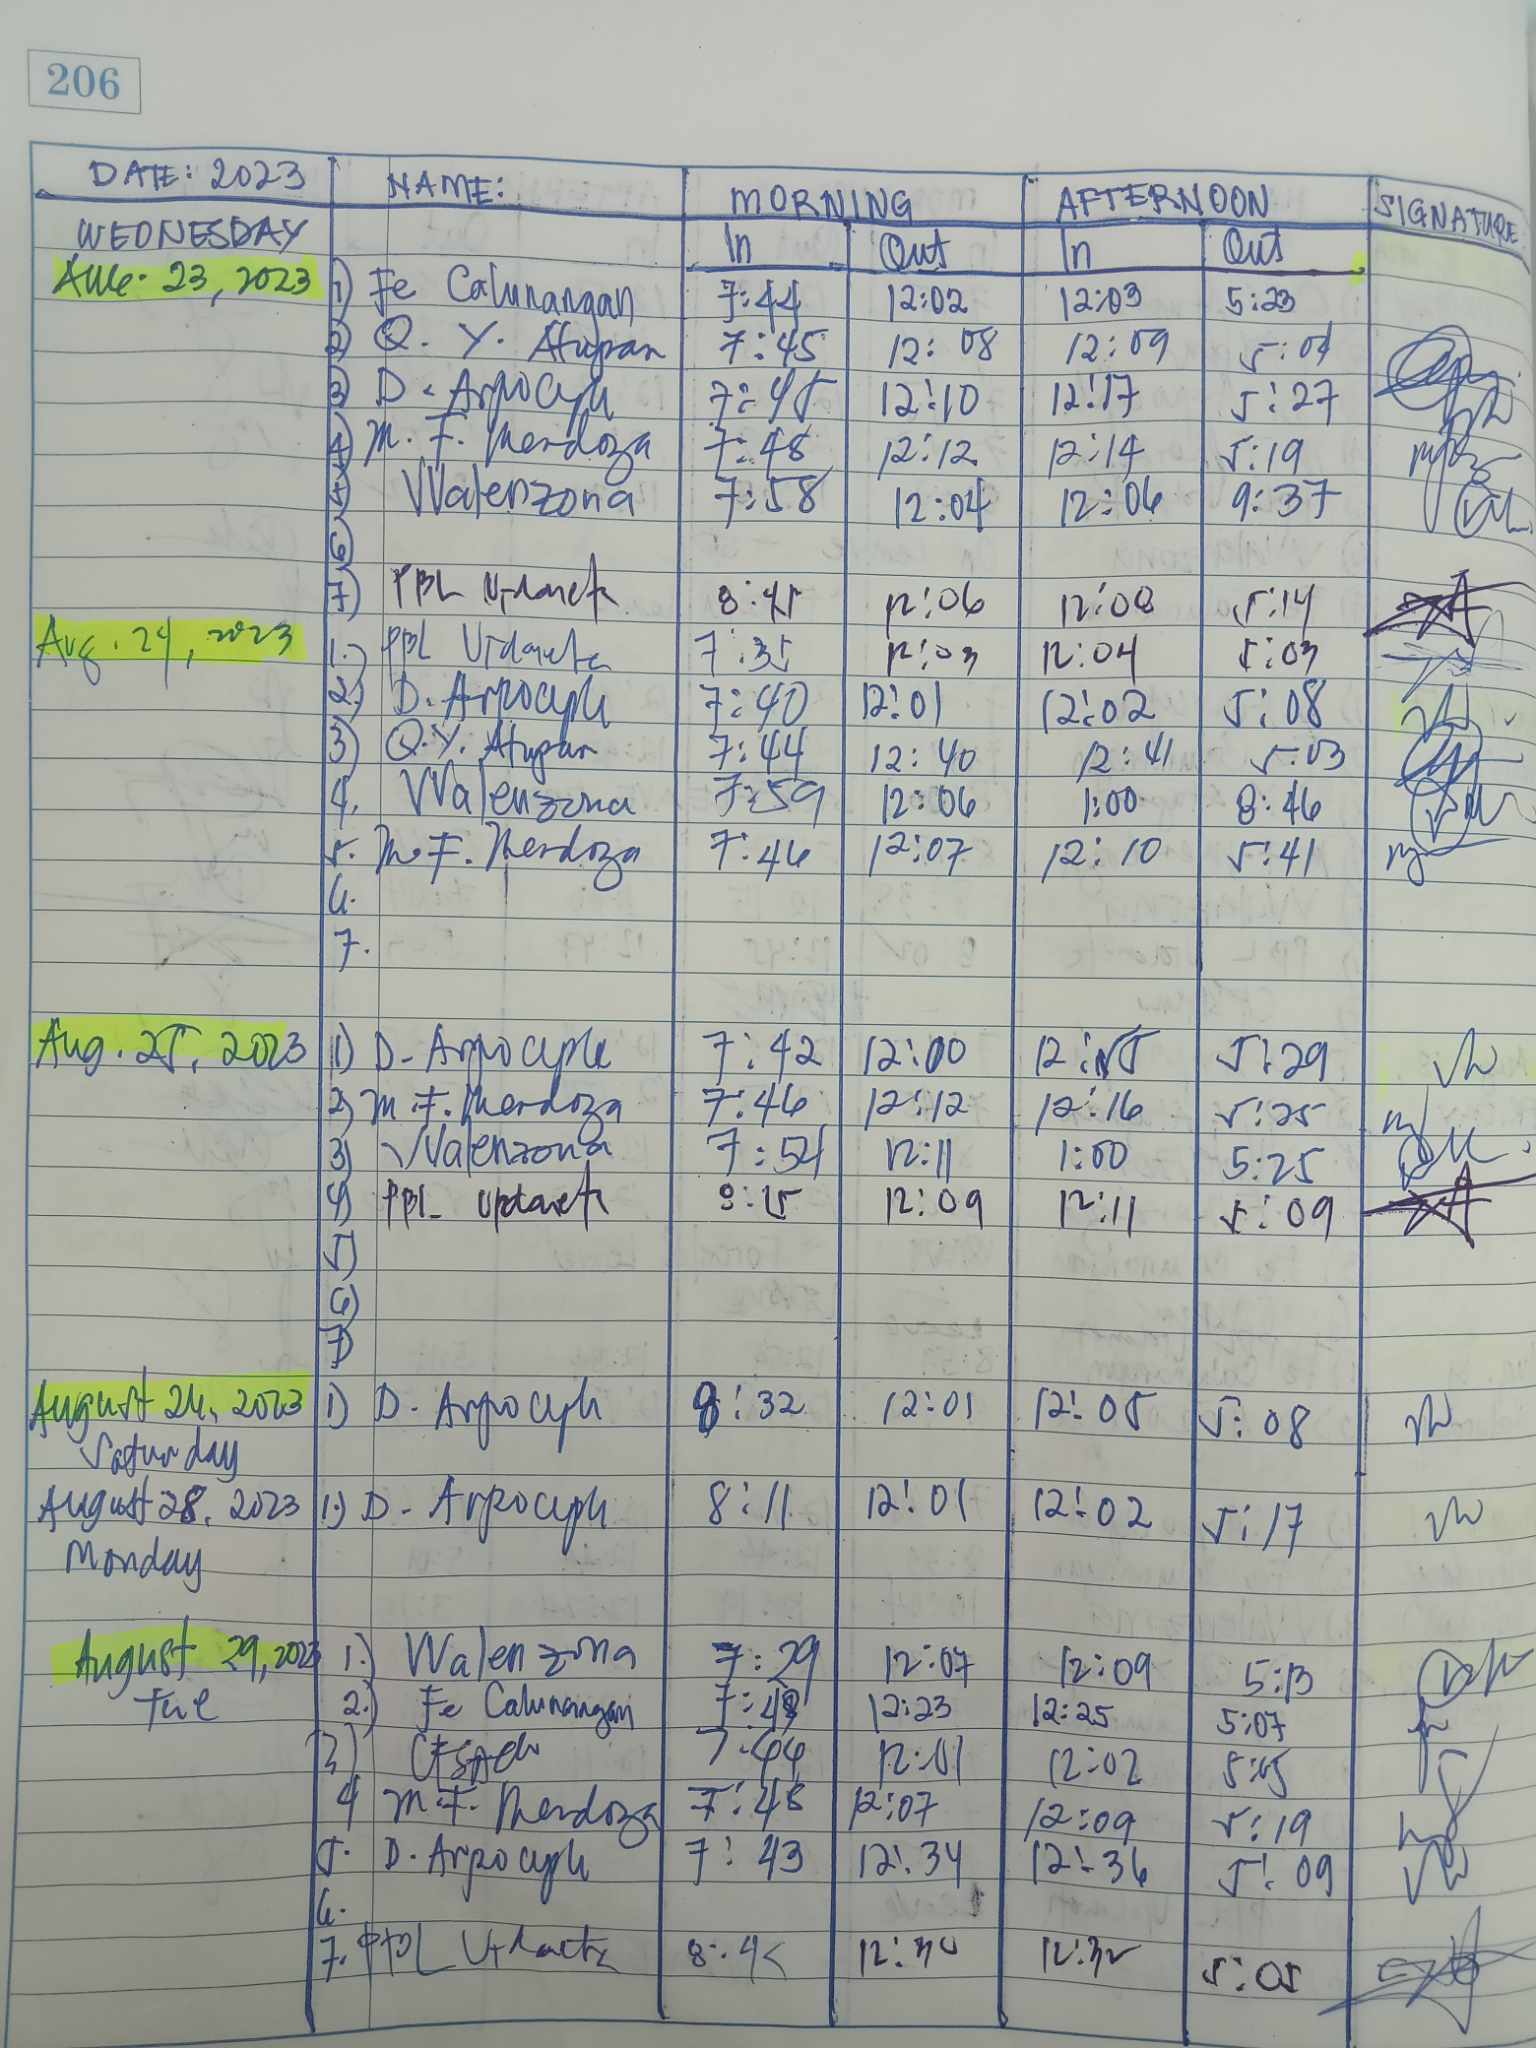 206
DATE: 2023 NAME: MORNING AFTERNOON SIGNATURE
WEDNESDAY In Out In Out
Aug. 23, 2023 1) Fe Calunangan 7:44 12:02 12:03 5:23
2) Q. Y. Atupan 7:45 12:08 12:09
3) D. 7:45 12:10 12:17 5:27
4) M. F. Mendoza 7:48 12:12 12:14 5:19
5) VValenzona 7:58 12:04 12:06 9:37
6)
7) PBL 8:45 12:06 12:08 5:14
Aug. 24, 2023 1.) PBL 7:35 12:03 12:04 5:03
2.) D. 7:40 12:01 12:02 5:08
3) Q.Y. Atupan 7:44 12:40 12:41 5:03
4. VValenzona 7:59 12:06 1:00 8:46
5. M. F. Mendoza 7:46 12:07 12:10 5:41
6.
7.
Aug. 25, 2023 1) D. 7:42 12:00 5:29
2) M. F. Mendoza 7:46 12:12 12:16 5:25
3) VValenzona 7:54 12:11 1:00 5:25
4) PBL 8:15 12:09 12:11 5:09
5)
6)
7)
August 26, 2023 1) D. 8:32 12:01 12:05 5:08
Saturday
August 28, 2023 1.) D. 8:11 12:01 12:02 5:17
Monday
August 29, 2023 1.) VValenzona 7:29 12:07 12:09 5:13
Tue 2.) Fe Calunangan 12:23 12:25 5:07
3) 12:01 12:02
4 M. F. Mendoza 7:48 12:07 12:09 5:19
5. D. 7:43 12:34 12:36 5:09
6.
7. 12:30 12:32 5:05